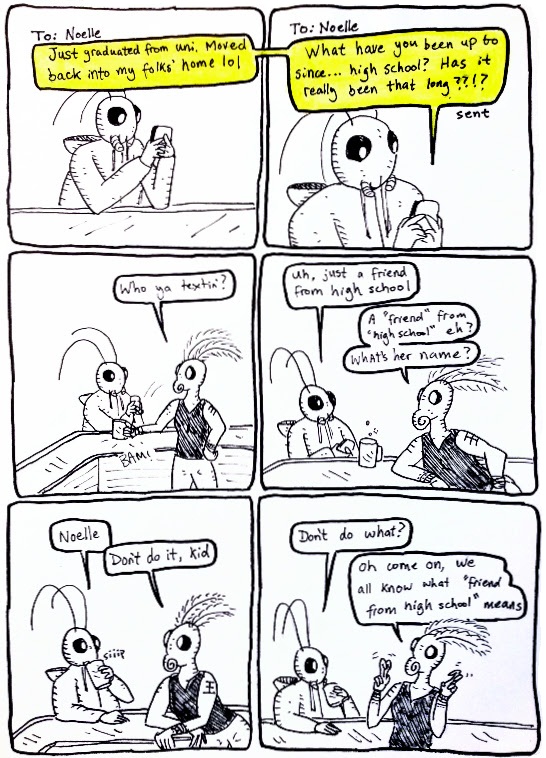 To: Noelle
Just graduated from uni. Moved
back into my folks' home lol
To: Noelle
What have you been up to
since... high school? Has it
really been that long??!?
sent
Who ya textin'?
BAM!
Uh, just a friend
from high school
A "friend" from
"high school" eh?
What's her name?
Noelle
Don't do it, kid
siiip
Don't do what?
Oh come on, we
all know what "friend
from high school" means